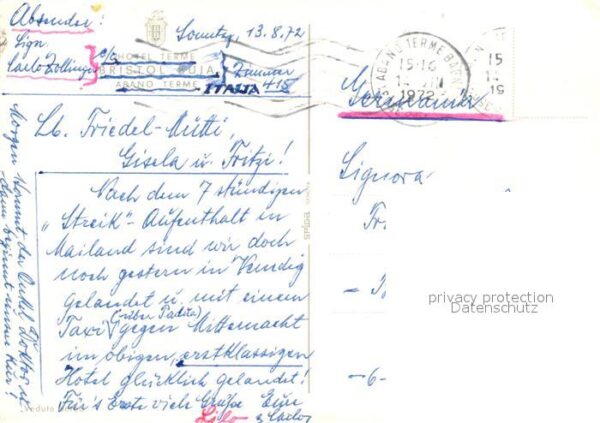 Absender:
Sign.
Carlo Zollinger
c/o
HOTEL TERME
BRISTOL BUJA
ABANO TERME
Zimmer
418
ITALIA
Sonntag, 13.8.72
ABANO TERME
15-16
14
1972
15
14
19
Germania
Lb. Friedel-Mutti,
Gisela u. Fritzi!
Nach dem 7 stündigen
„Streik"-Aufenthalt in
Mailand sind wir doch
noch gestern in Venedig
gelandet u. mit einem
Taxi (über Padua) gegen Mitternacht
im obigen, erstklassigen
Hotel glücklich gelandet!
Für's Erste viele Grüße Eure
Lilo
& Carlo
Morgen kommt der Onkel Doktor u.
dann beginnt unsere Kur!
Signora
Fr
-6-
privacy protection
Datenschutz